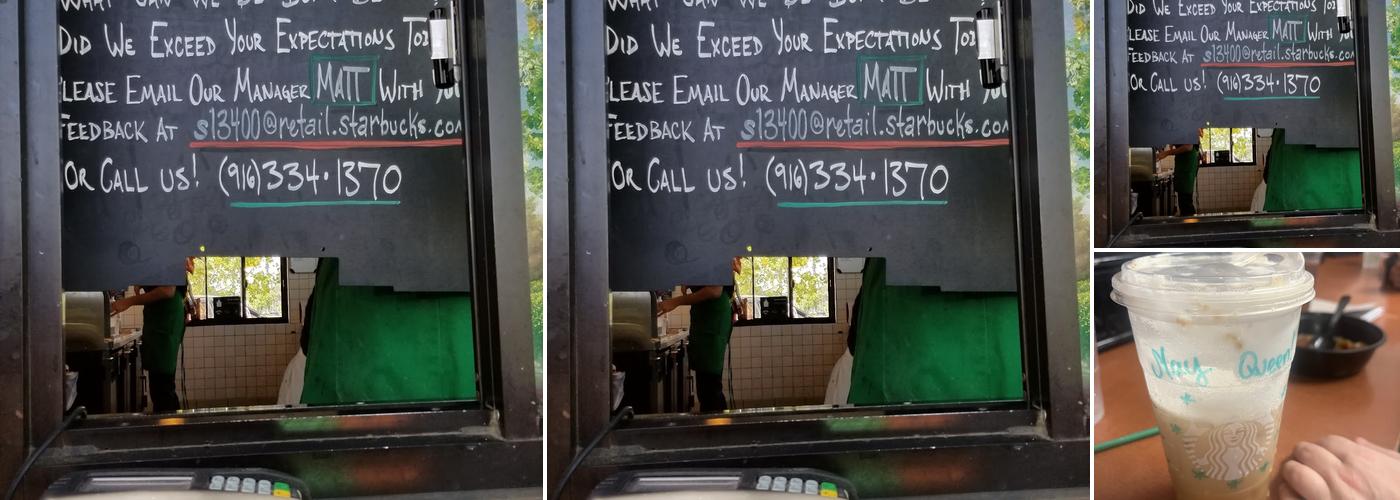 WHAT CAN WE DO BUT BE
DID WE EXCEED YOUR EXPECTATIONS
LEASE EMAIL OUR MANAGER MATT WITH
FEEDBACK AT s13400@retail.starbucks.co
OR CALL US! (916)334·1370
DID WE EXCEED YOUR EXPECTATIONS
LEASE EMAIL OUR MANAGER MATT WITH
FEEDBACK AT s13400@retail.starbucks.co
OR CALL US! (916)334·1370
DID WE EXCEED YOUR EXPECTATIONS
LEASE EMAIL OUR MANAGER MATT WITH
FEEDBACK AT s13400@retail.starbucks.co
OR CALL US! (916)334·1370
Slay Queen!